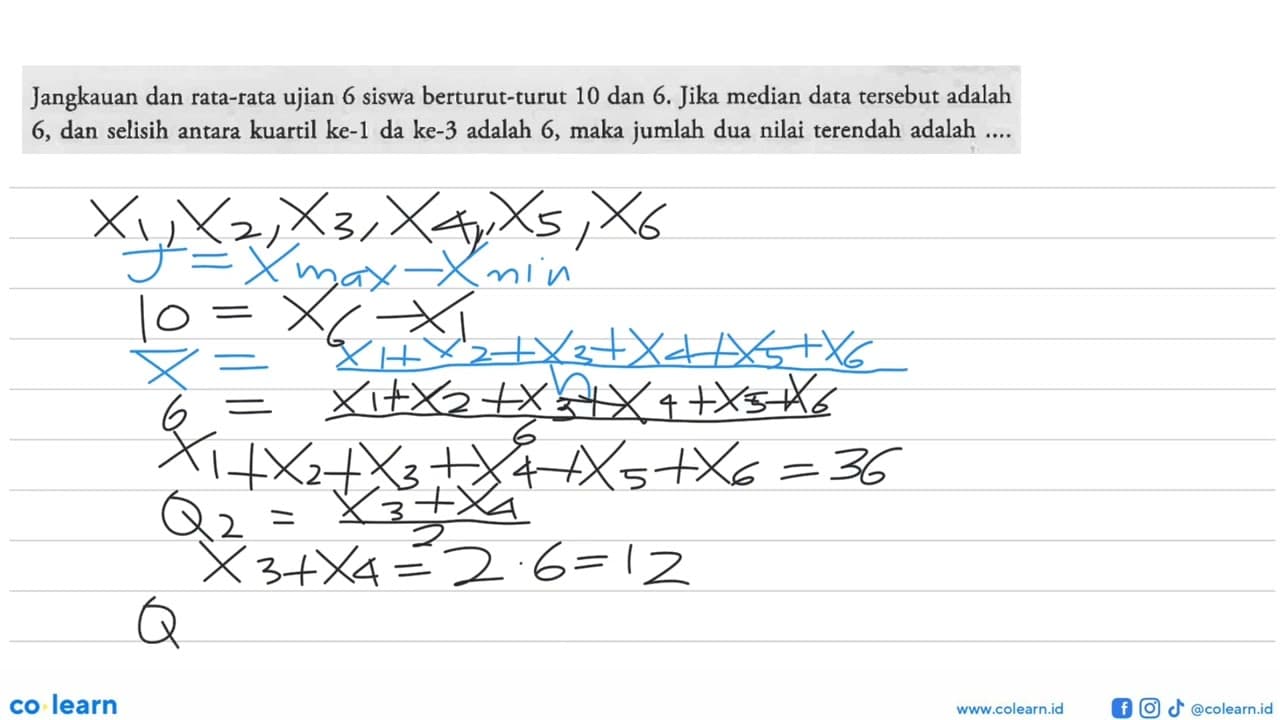 Jangkauan dan rata-rata ujian 6 siswa berturut-turut 10 dan 6. Jika median data tersebut adalah
6, dan selisih antara kuartil ke-1 da ke-3 adalah 6, maka jumlah dua nilai terendah adalah ....
X1, X2, X3, X4, X5, X6
J = Xmax - Xmin
10 = X6 - X1
x̄ = (X1 + X2 + X3 + X4 + X5 + X6) / n
6 = (X1 + X2 + X3 + X4 + X5 + X6) / 6
X1 + X2 + X3 + X4 + X5 + X6 = 36
Q2 = (X3 + X4) / 2
X3 + X4 = 2 · 6 = 12
Q
co learn
www.colearn.id
@colearn.id